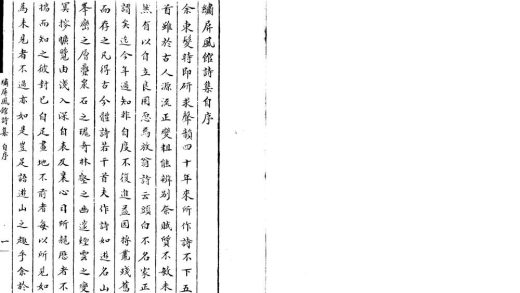 繡屏風館詩集自序
余束髮時即研求聲韻四十年來所作詩不下五
首雖於古人源流正變粗能辨别奈賦質不敏未
然有以自立良用恧焉放翁詩云頭白不名家正
謂矣迄今年過知非自度不復進益因將叢殘舊
而存之凡得古今體詩若干首夫作詩如遊名山
峯巒之層疊泉石之瑰奇林壑之幽邃煙雲之變
冥搜曠覽由淺入深自表及裏心目所競歷者不
揣而知之彼封己自足畫地不前者每以所見如
為未見者不過亦如是豈足語遊山之趣乎余於
繡屏風館詩集 自序
一